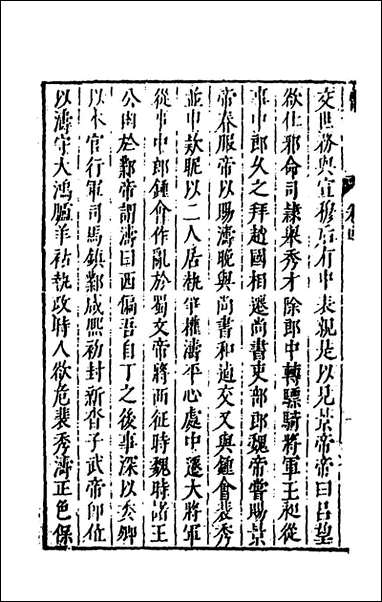 交世務與宣穆后有中表親是以見景帝帝曰呂望
欲仕邪命司隸舉秀才除郎中轉驃騎將軍王昶從
事中郎久之拜趙國相遷尚書吏部郎魏帝嘗賜景
帝春服帝以賜濤晚與尚書和逌交又與鍾會裴秀
並申款昵以二人居埶爭權濤平心處中遷大將軍
從事中郎鍾會作亂於蜀文帝將西征時魏時諸王
公肉於鄴帝謂濤曰西偏吾自丁之後事深以委卿
以本官行軍司馬鎮鄴咸熙初封新沓子武帝卽位
以濤守大鴻臚羊祜執政時人欲危裴秀濤正色保